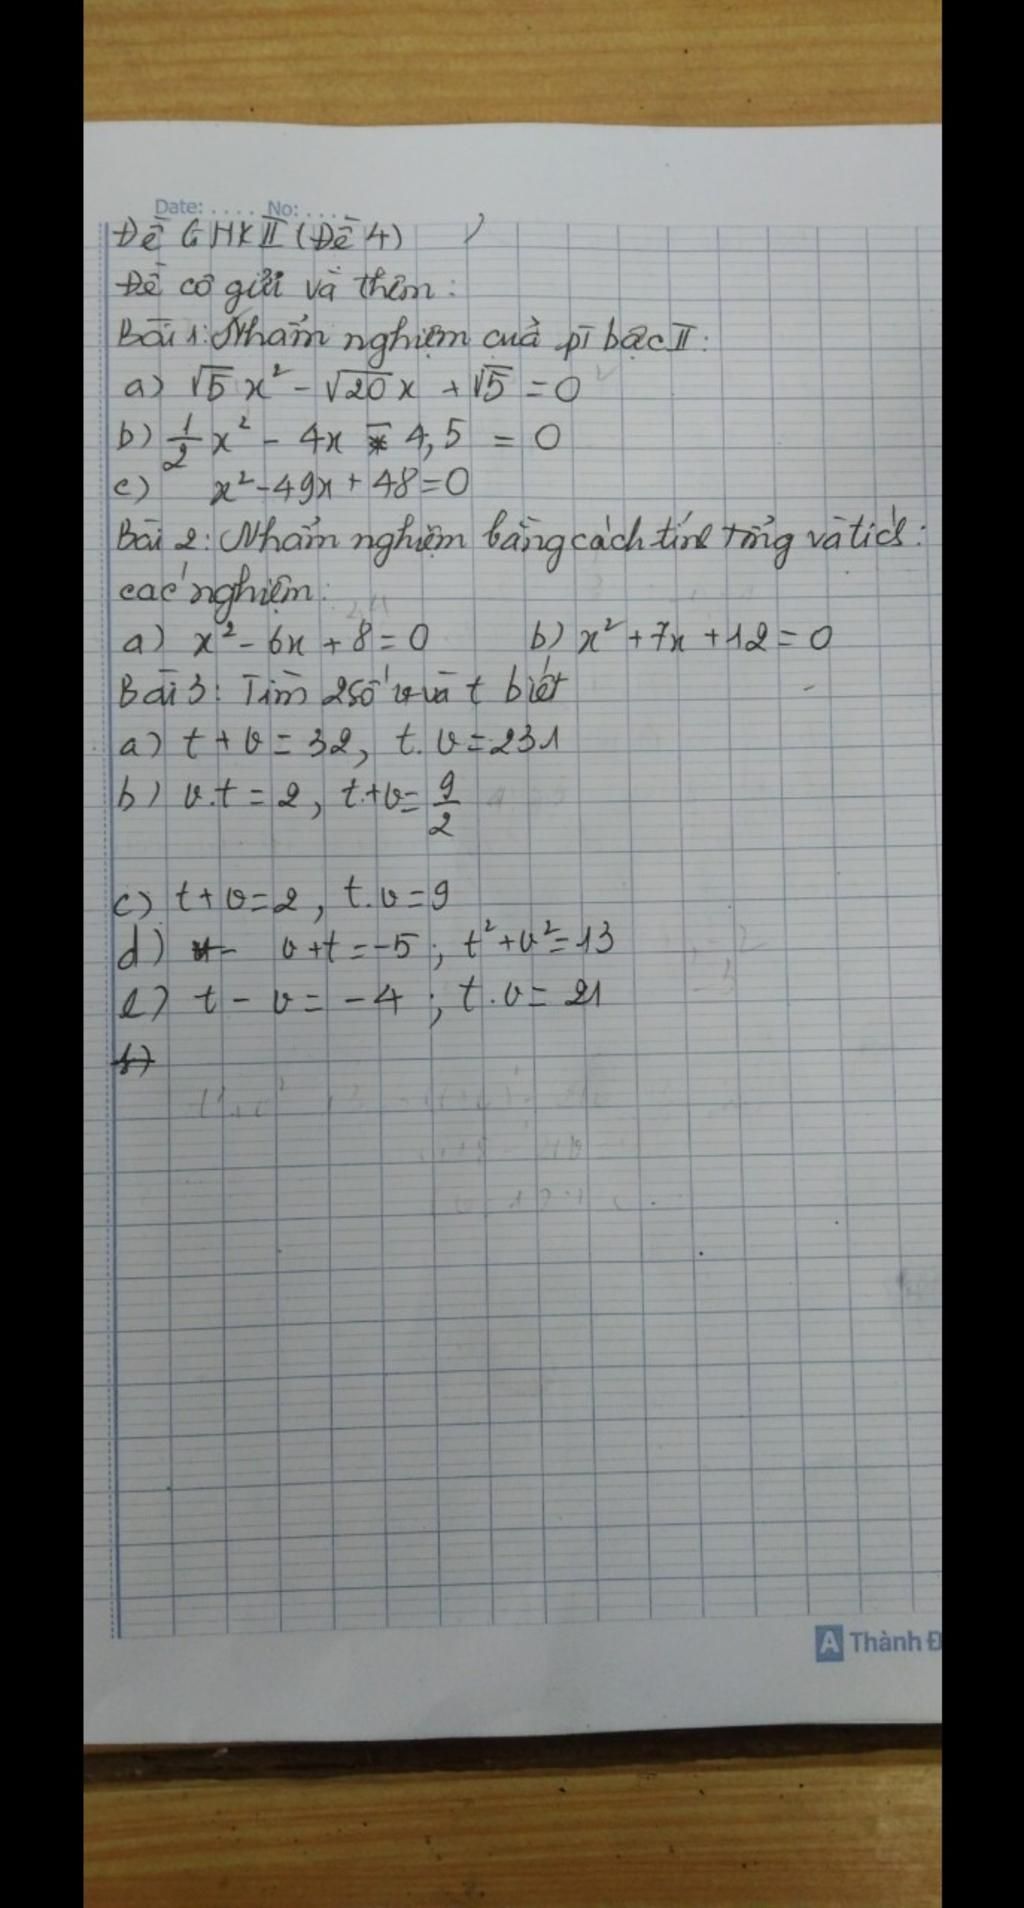 Date: .... No: ....
Đề GHKII (Đề 4)
Đề cô gửi và thêm:
Bài 1: Nhẩm nghiệm cuả pī bậc II:
a) √5 x² - √20 x + √5 = 0
b) 1/2 x² - 4x - 4,5 = 0
c) x² - 49x + 48 = 0
Bài 2: Nhẩm nghiệm bằng cách tính tổng và tích:
các nghiệm:
a) x² - 6x + 8 = 0 b) x² + 7x + 12 = 0
Bài 3: Tìm 2 số v và t biết
a) t + v = 32, t. v = 231
b) v.t = 2, t+v = 9/2
c) t + v = 2, t. v = 9
d) v + t = -5; t² + v² = 13
e) t - v = -4; t. v = 21
A Thành Đ